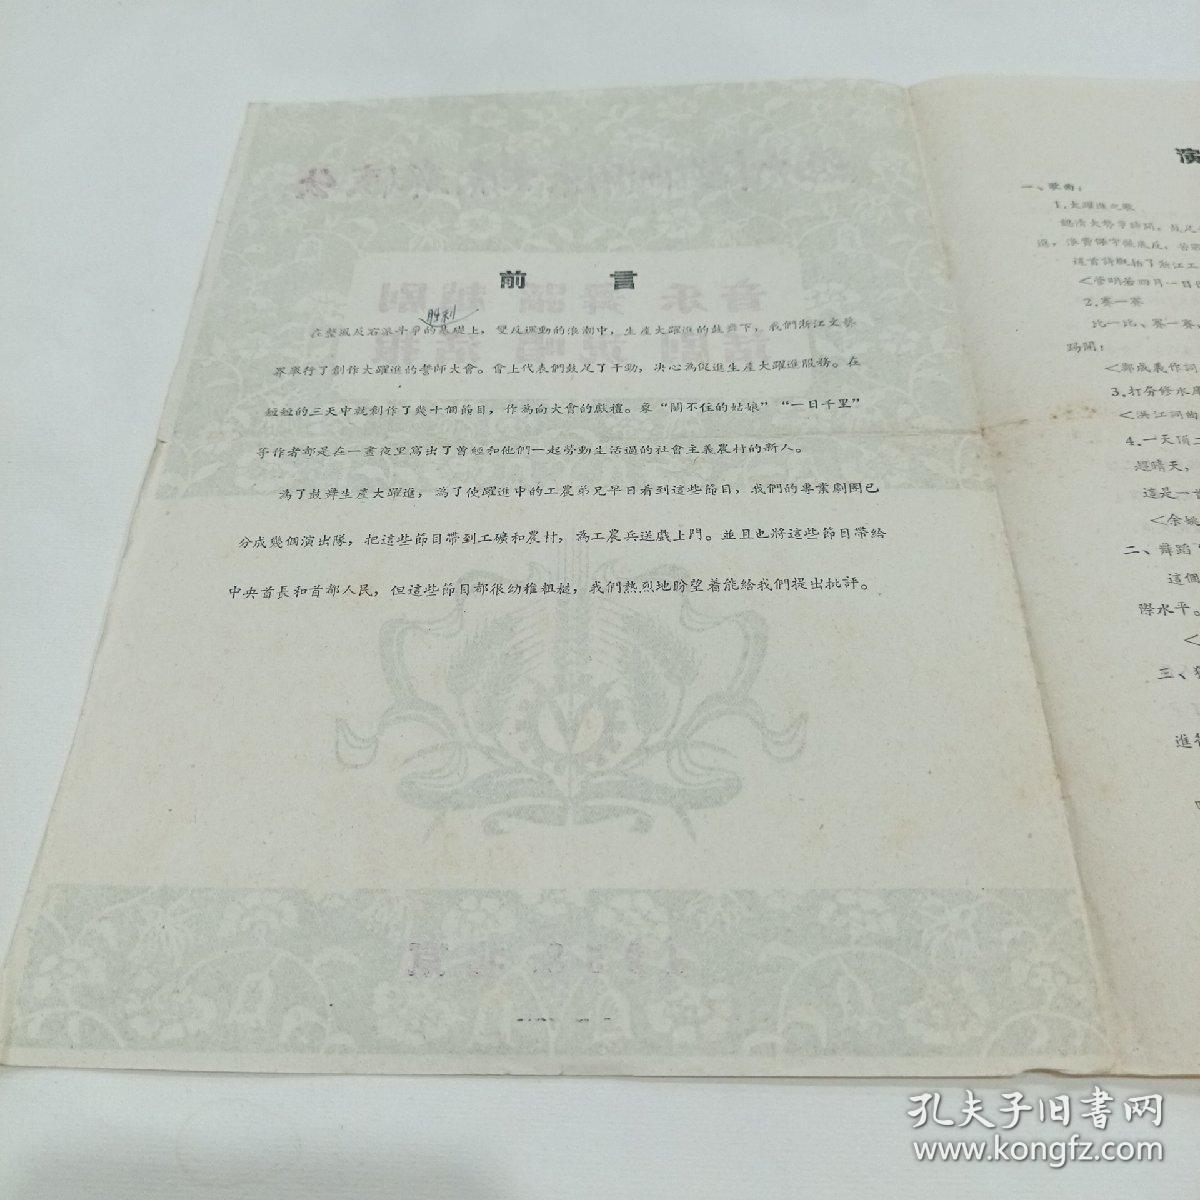 前言
胜利
在整風及右派斗爭的基礎上，雙反運動的浪潮中，生產大躍進的鼓舞下，我們浙江文藝
界舉行了創作大躍進的誓師大會。會上代表們鼓足了干勁，决心為促進生產大躍進服務。在
短短的三天中就創作了幾十個節目，作為向大會的獻禮。象“關不住的姑娘”“一日千里”
等作者都是在一晝夜里寫出了曾經和他們一起勞動生活過的社會主義農村的新人。
為了鼓舞生產大躍進，為了使躍進中的工農弟兄早日看到這些節目，我們的專業劇團已
分成幾個演出隊，把這些節目帶到工礦和農村，為工農兵送戲上門。並且也將這些節目帶給
中央首長和首都人民，但這些節目都很幼稚粗糙，我們熱烈地盼望着能給我們提出批評。
演
一、歌曲：
1.大躍進之歌
認清大勢爭時間，鼓足
進，浪費保守徹底反，苦
這首詩概括了浙江工
2.賽一賽
比一比、賽一賽，
踢開：
<鄭成義作詞
3.打夯修水庫
<洪江詞曲
4.一天頂二
趕晴天，
這是一首
<余姚
二、舞蹈
這個
際水平。
三、
進行
孔夫子旧书网
www.kongfz.com